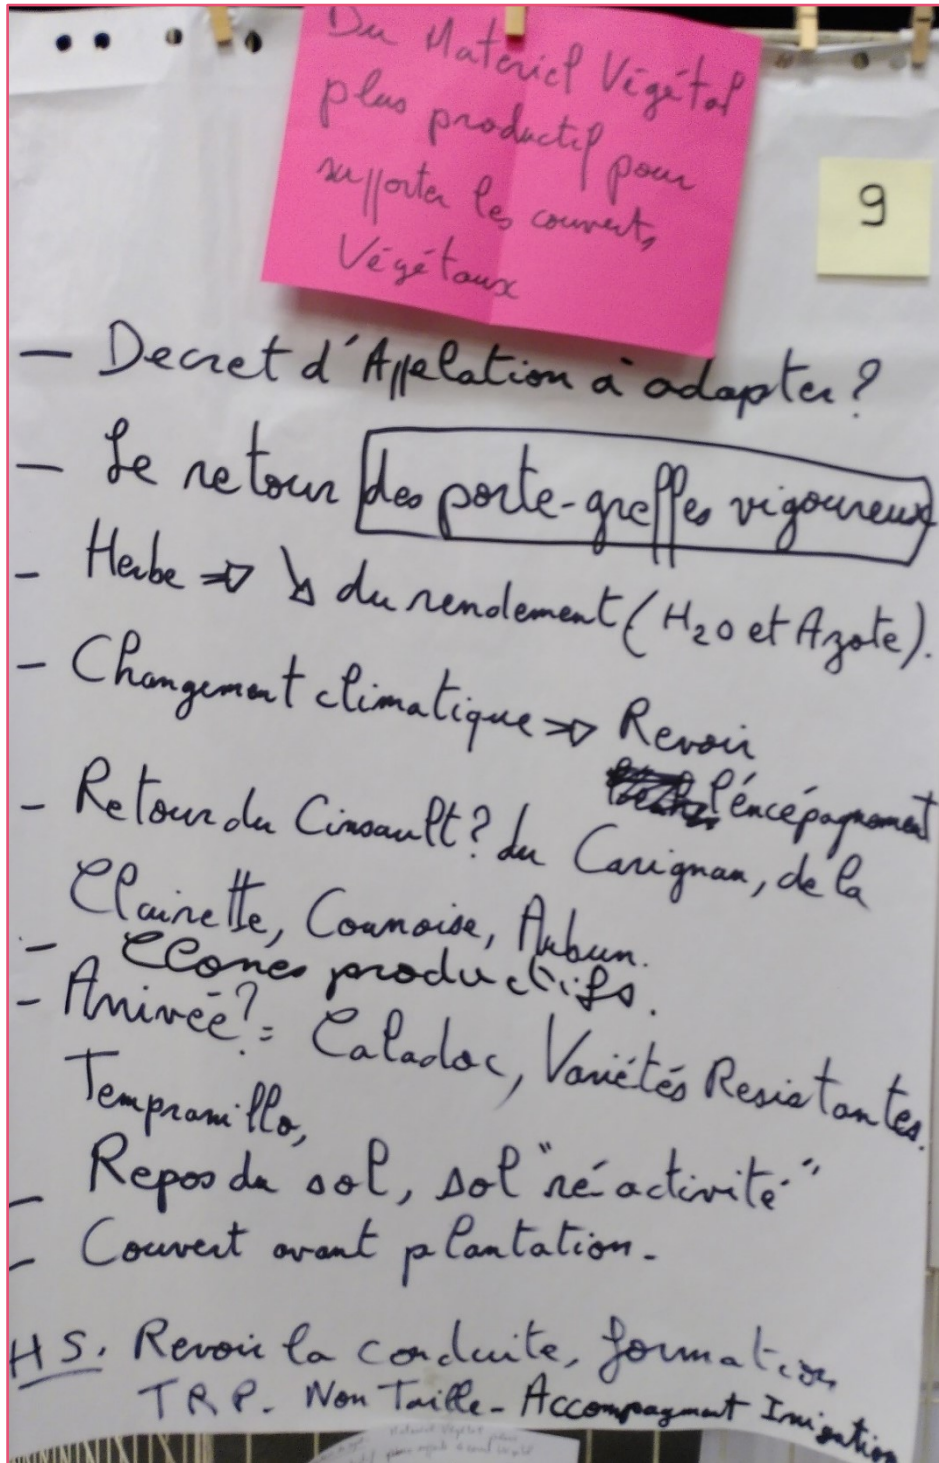 Du Matériel Végétal
plus productif pour
supporter les couverts
Végétaux
9
- Decret d'Appelation à adapter ?
- Le retour des porte-greffes vigoureux
- Herbe => ↘ du rendement (H2O et Azote).
- Changement climatique => Revoir
l'éncépagnement
- Retour du Cinsault ? du Carignan, de la
Clairette, Counoise, Aubun.
- Clones productifs.
- Arrivée ? = Caladoc, Variétés Resistantes.
Tempranillo,
- Repos du sol, sol "ré-activité"
- Couvert avant plantation.
HS. Revoir la conduite, formation
TRP. Non Taille - Accompagnment Irrigation